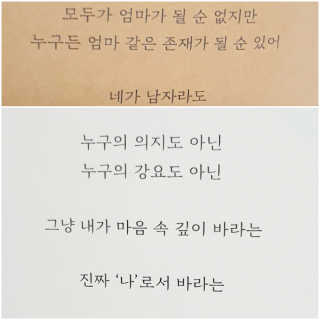 모두가 엄마가 될 순 없지만
누구든 엄마 같은 존재가 될 순 있어
네가 남자라도
누구의 의지도 아닌
누구의 강요도 아닌
그냥 내가 마음 속 깊이 바라는
진짜 ‘나’로서 바라는